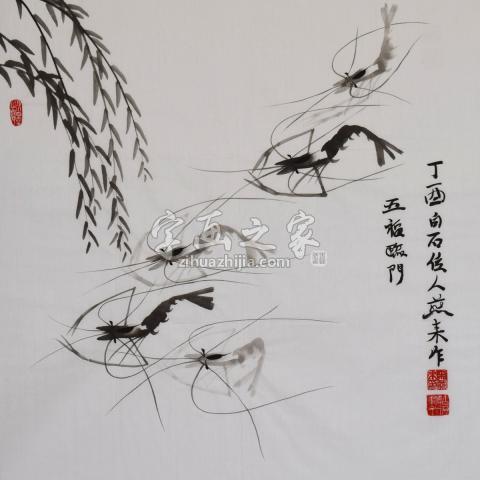 丁酉白石後人燕来作
五福臨門
字画之家
zihuazhijia.com